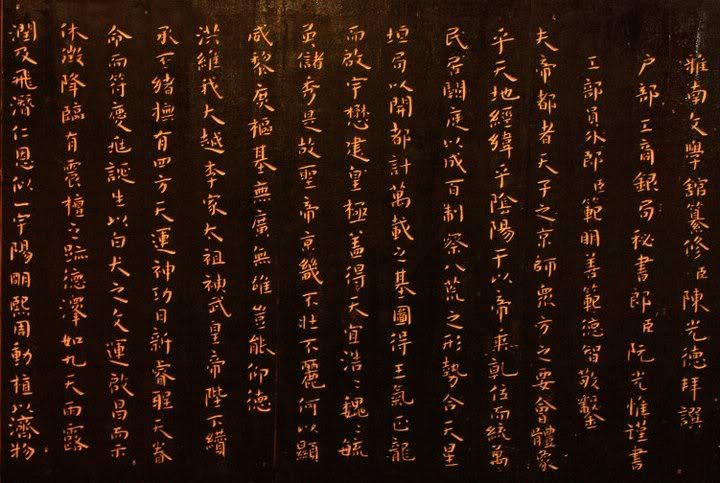 雅南文學館纂修臣陳光德拜譔
户部工商銀局秘書郎臣阮光惟謹書
工部員外郎臣範明善範德智敬鑿
夫帝都者天子之京師眾方之要會體象
乎天地經緯乎陰陽于以帝乘乾位而統萬
民居闢庭以成百制察八荒之形勢合天星
垣局以開都計萬載之基圖得王氣正龍
而啟宇懋建皇極蓋得天宜浩〻魏〻毓
英儲秀是故聖帝京畿不壯不麗何以顯
威黎庶樞基無廣無雄豈能仰德
洪維我大越李家太祖神武皇帝陛下纘
承丕緒撫有四方天運神功日新睿聖天眷
命而符慶旭誕生以白犬之文運啟昌而示
休徵降臨有震檀之跡德澤如九天雨露
潤及飛潛仁恩似一宇陽明熙周動植以濟物